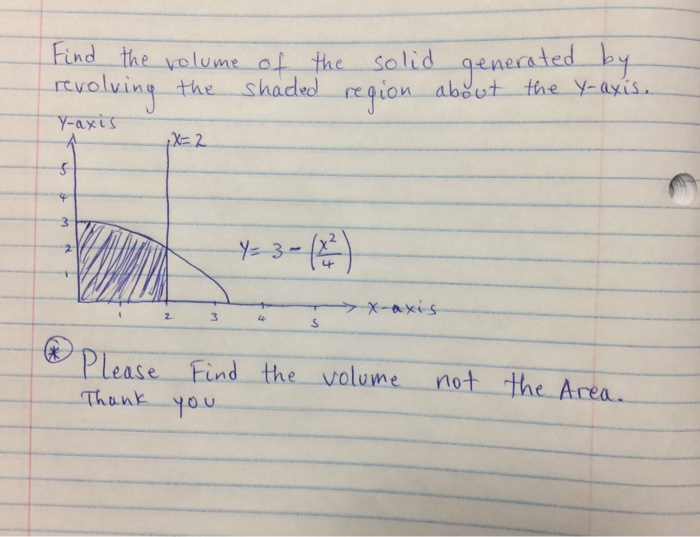 Find the volume of the solid generated by
revolving the shaded region about the y-axis.
Y-axis
x=2
5
4
3
2
1
y= 3 - (x²/4)
1 2 3 4 5
x-axis
* Please Find the volume not the Area.
Thank you